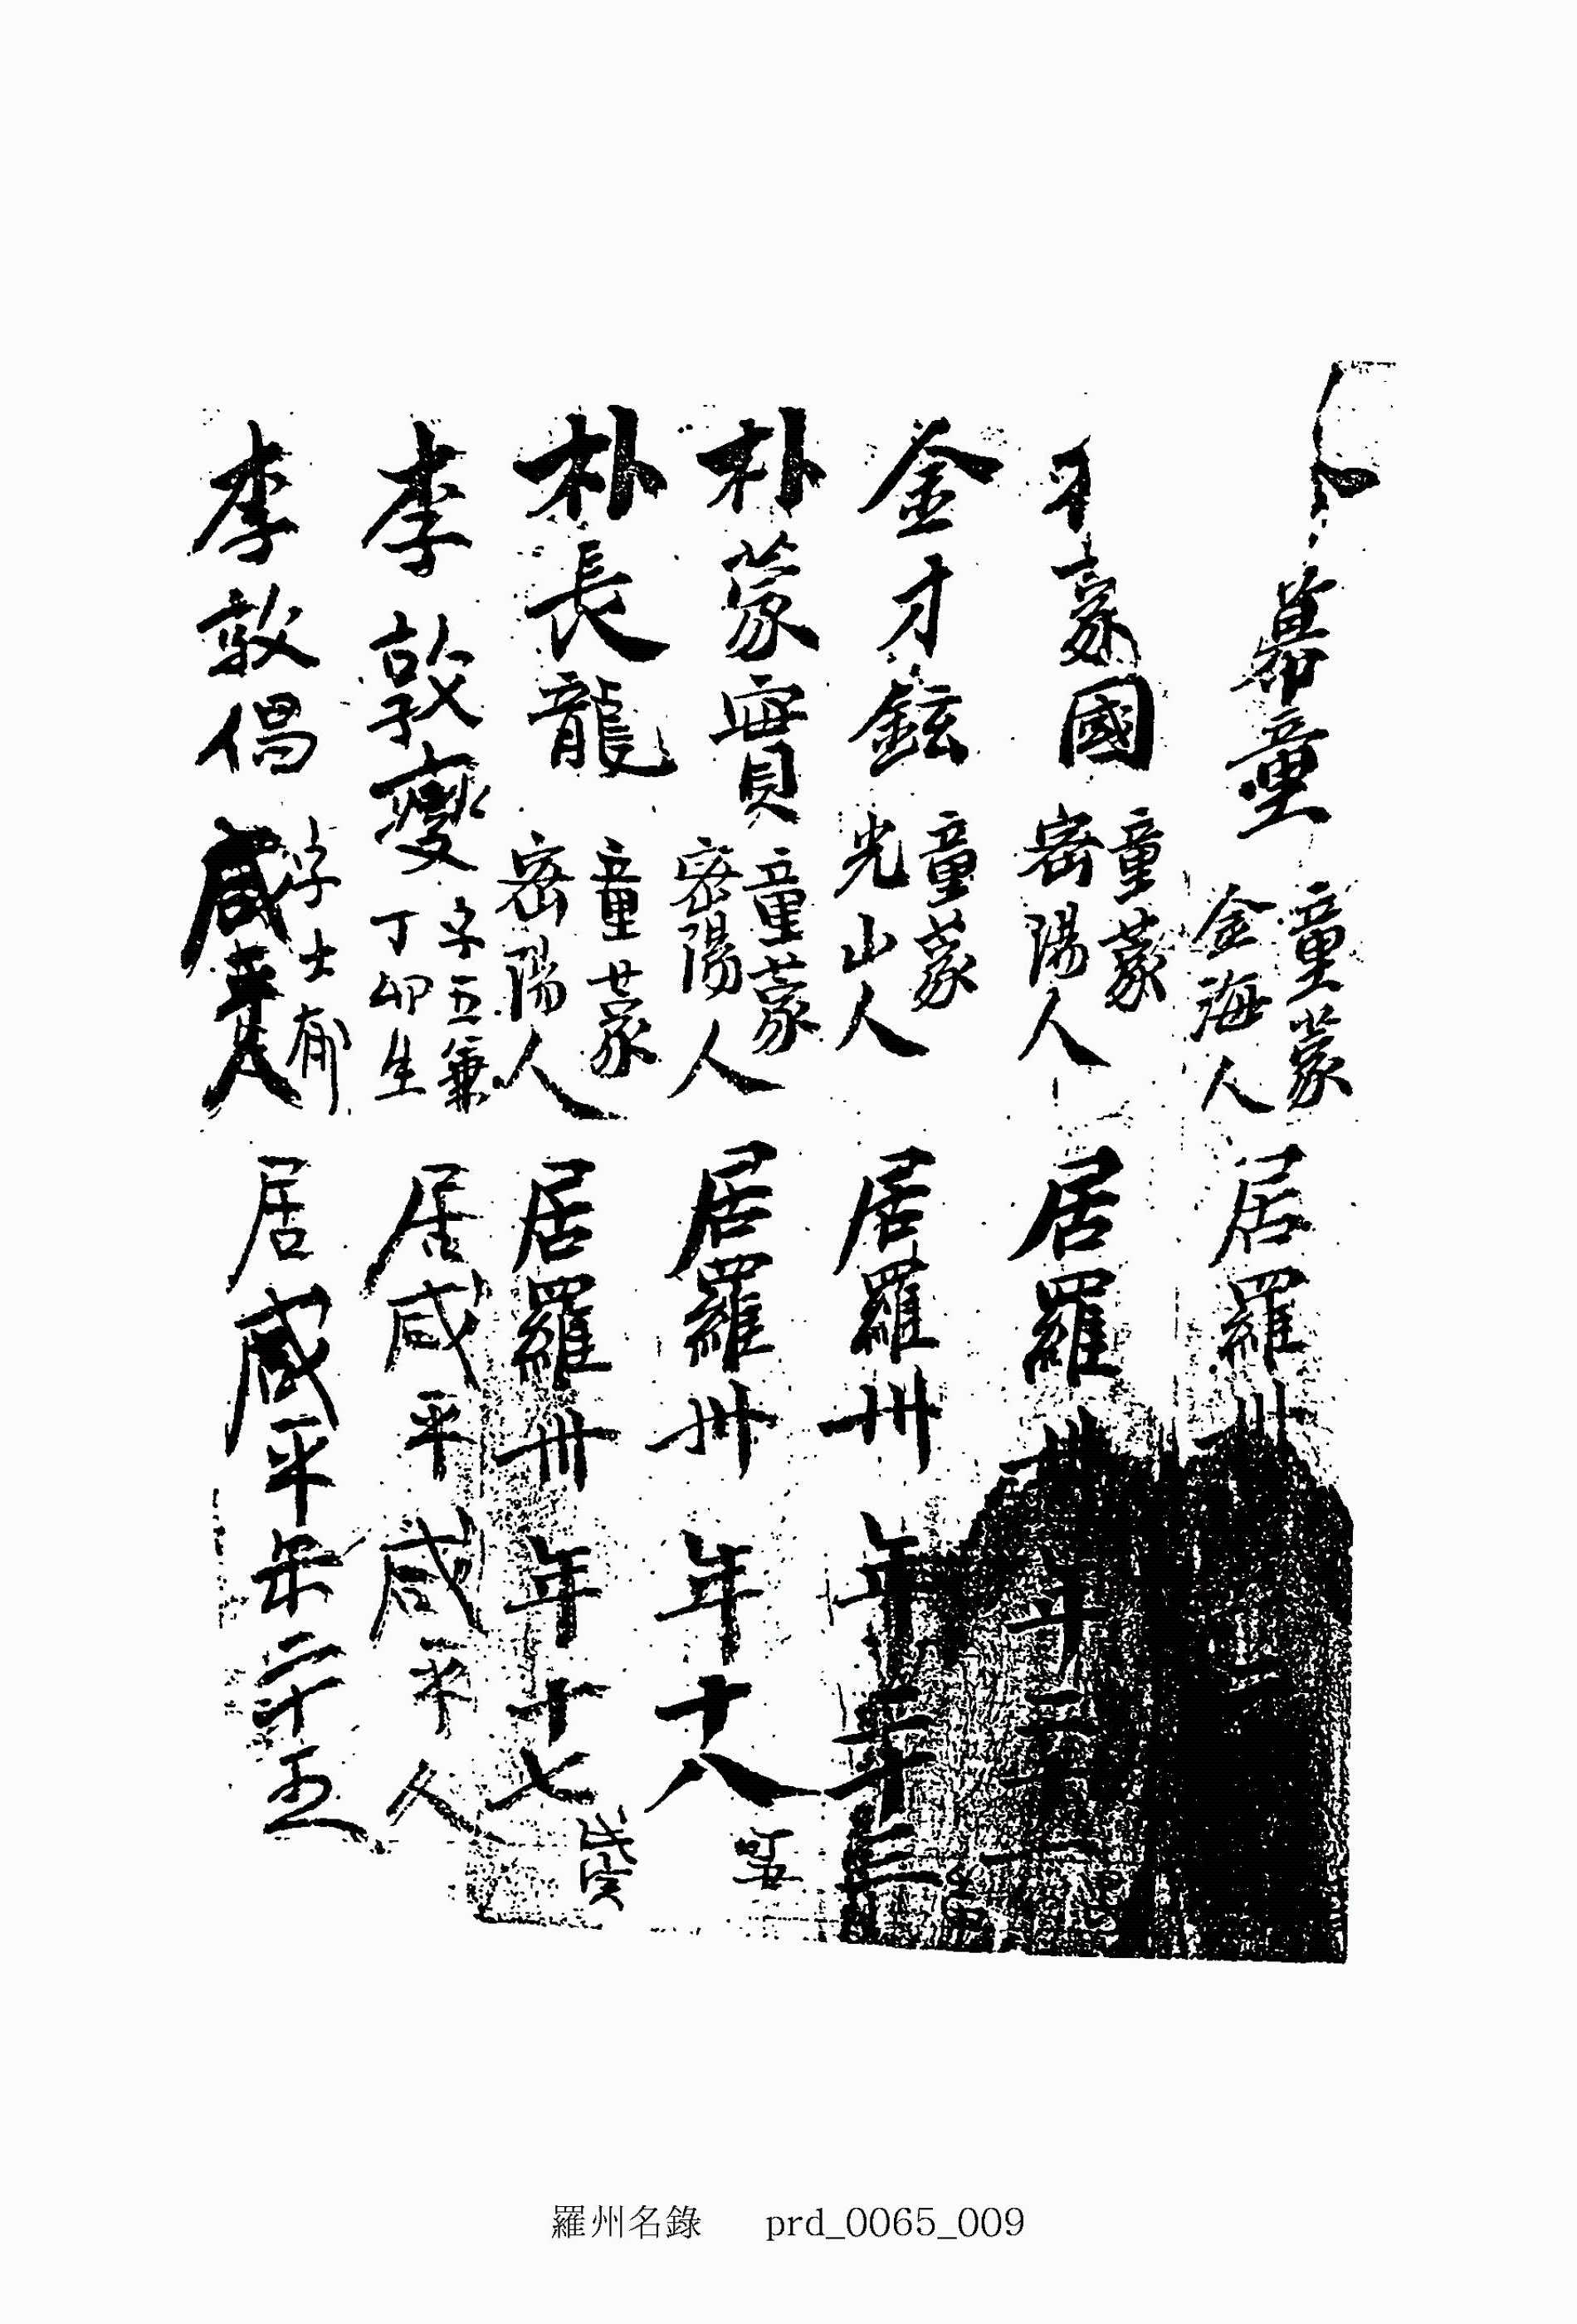 幕童 童蒙 金海人 居羅州
蒙國 童蒙 密陽人 居羅州 年二十一
金才鉉 童蒙 光山人 居羅州 年二十三
朴蒙實 童蒙 密陽人 居羅州 年十八
朴長龍 童蒙 密陽人 居羅州 年十七 歲
李敦燮 字五兼 丁卯生 居咸平 咸平人
李敦倡 字士郁 咸平人 居咸平 年二十五
羅州名錄 prd_0065_009